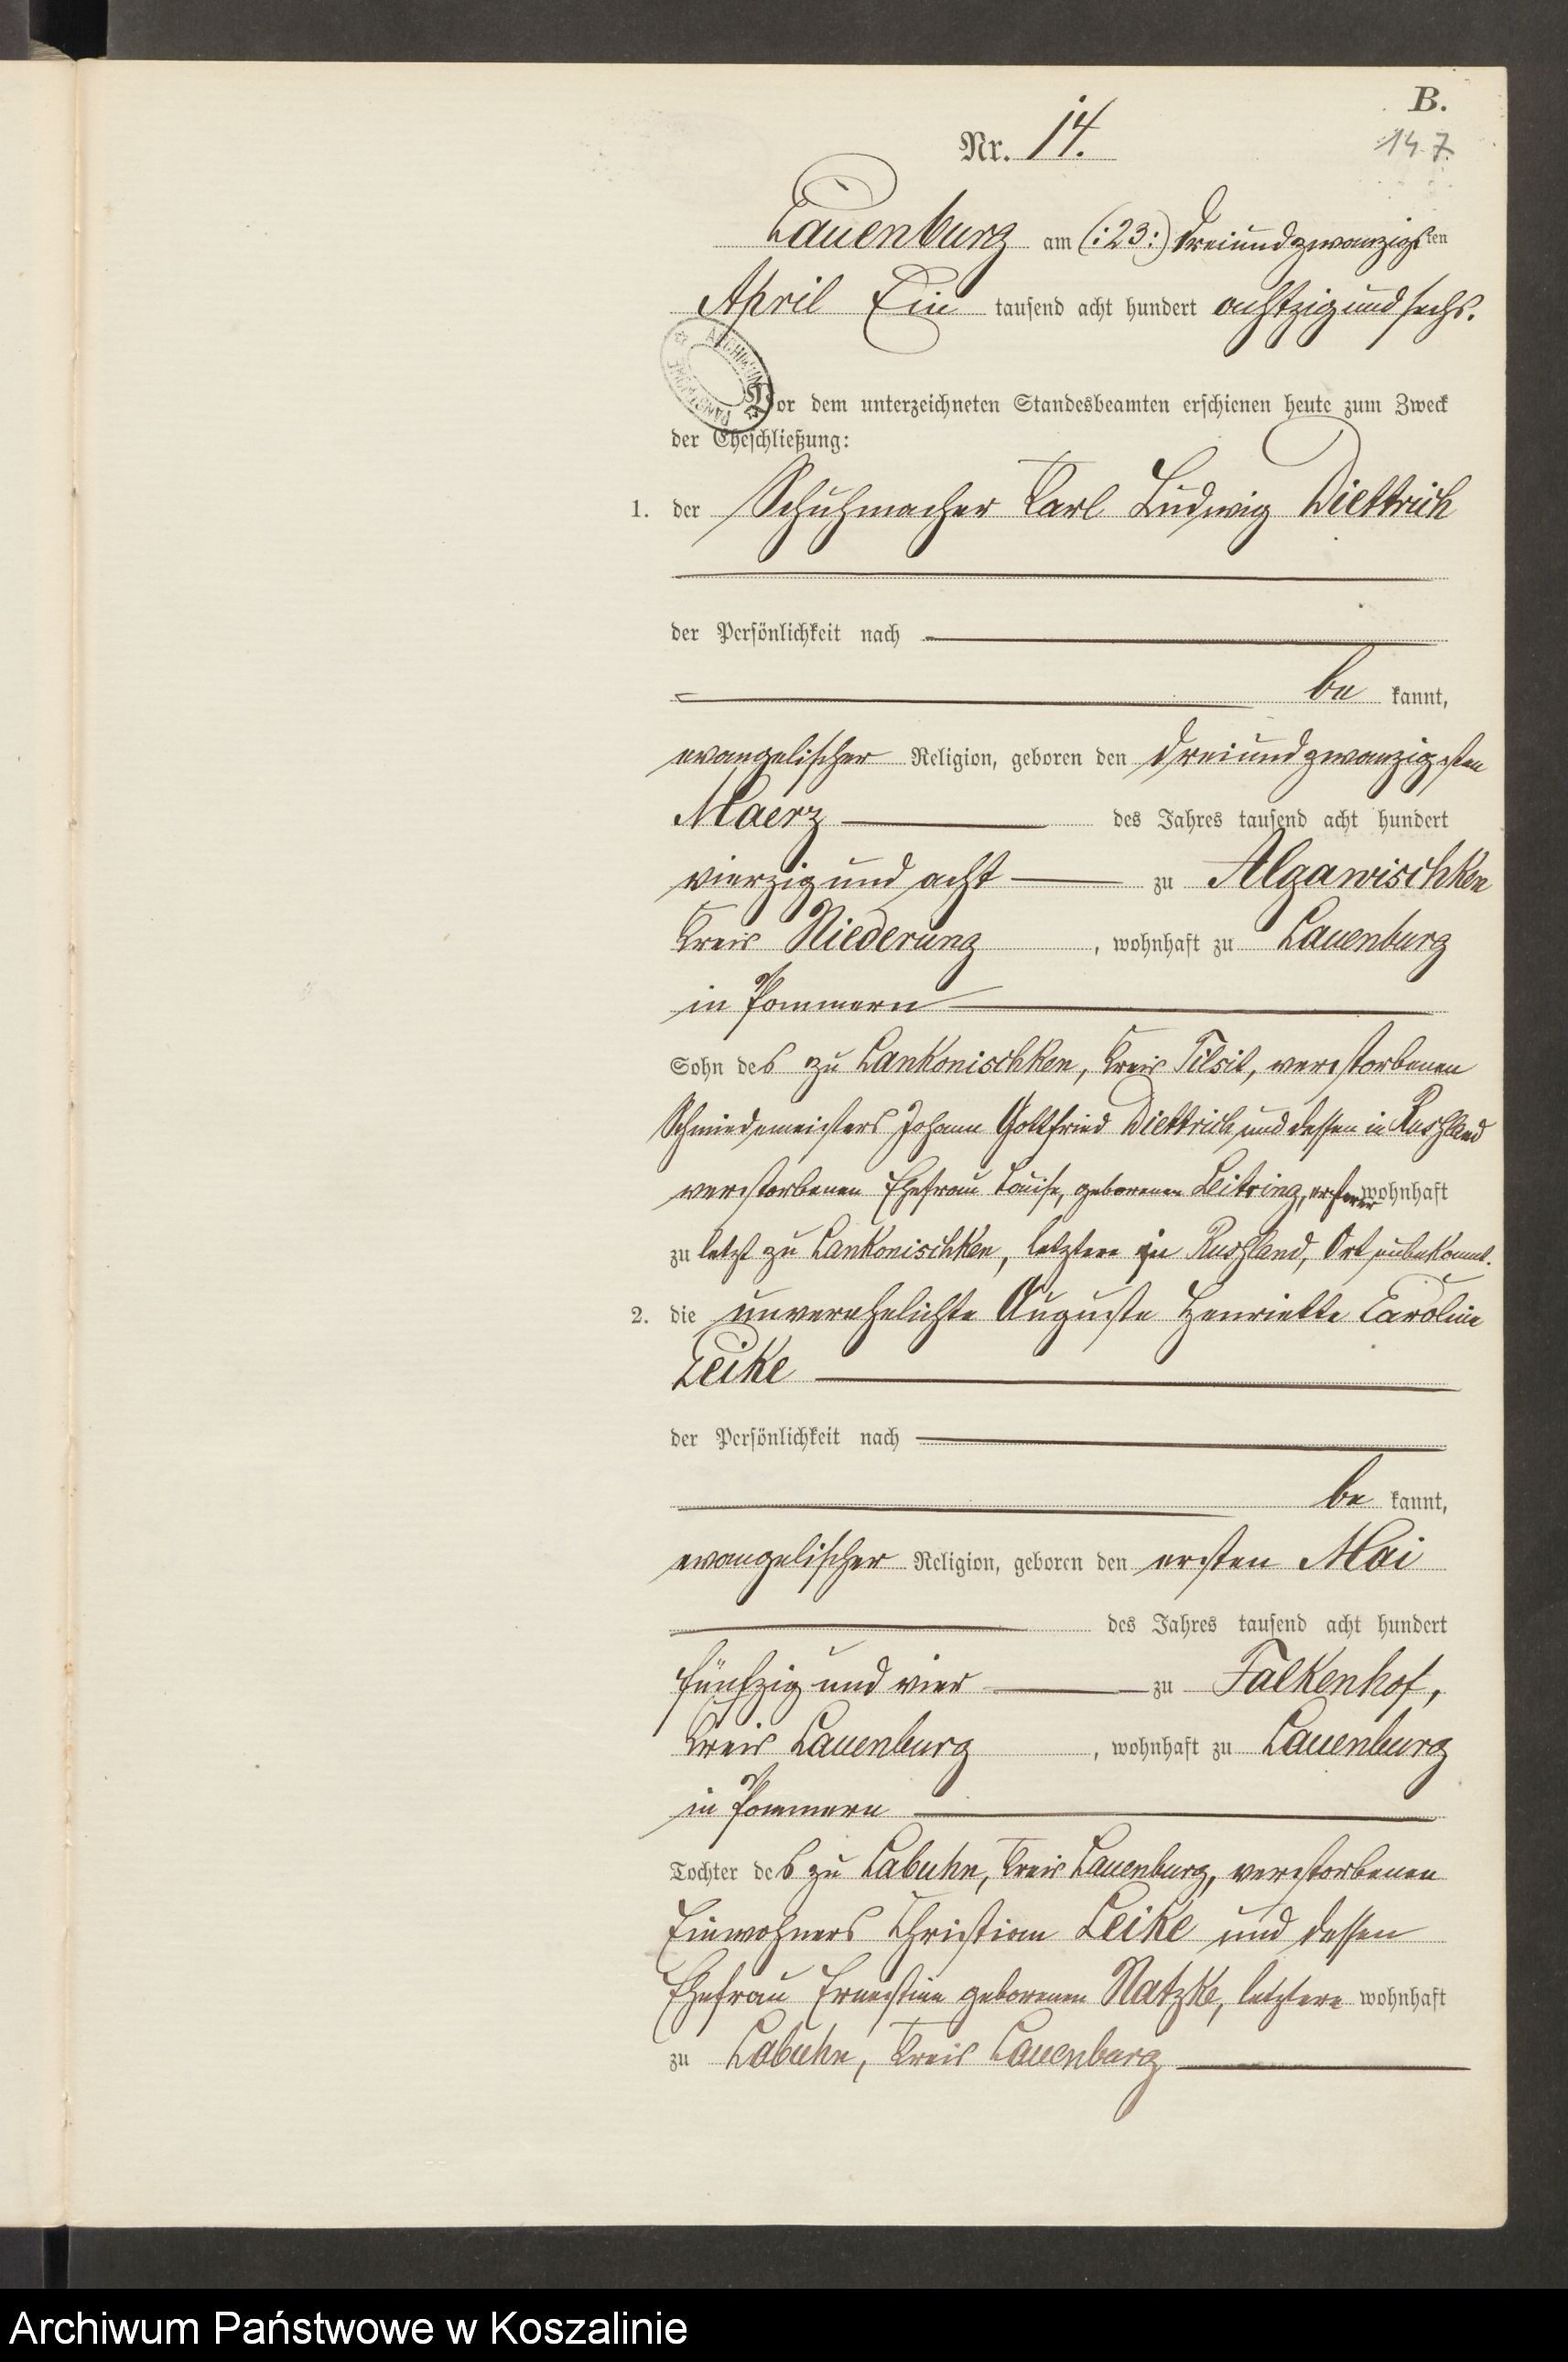 B.
Nr. 14.
147.
Lauenburg am (:23:) dreiundzwanzigsten
April Ein tausend acht hundert achtzig und sechs.
Vor dem unterzeichneten Standesbeamten erschienen heute zum Zweck
der Eheschließung:
1. der Schuhmacher Karl Ludwig Diettrich
der Persönlichkeit nach
be kannt,
evangelischer Religion, geboren den dreiundzwanzigsten
Maerz des Jahres tausend acht hundert
vierzig und acht zu Algawischken
Kreis Niederung, wohnhaft zu Lauenburg
in Pommern
Sohn des zu Lankonischken, Kreis Tilsit, verstorbenen
Schmiedemeisters Johann Gottfried Diettrich und dessen in Russland
verstorbenen Ehefrau Louise, geborenen Leitring, ersterer wohnhaft
zu letzt zu Lankonischken, letztere in Russland, Ort unbekannt.
2. die unverehelichte Auguste Henriette Caroline
Leike
der Persönlichkeit nach
be kannt,
evangelischer Religion, geboren den ersten Mai
des Jahres tausend acht hundert
fünfzig und vier zu Falkenhof,
Kreis Lauenburg, wohnhaft zu Lauenburg
in Pommern
Tochter des zu Labuhn, Kreis Lauenburg, verstorbenen
Einwohners Christian Leike und dessen
Ehefrau Ernestine geborenen Natzke, letztere wohnhaft
zu Labuhn, Kreis Lauenburg
Archiwum Państwowe w Koszalinie